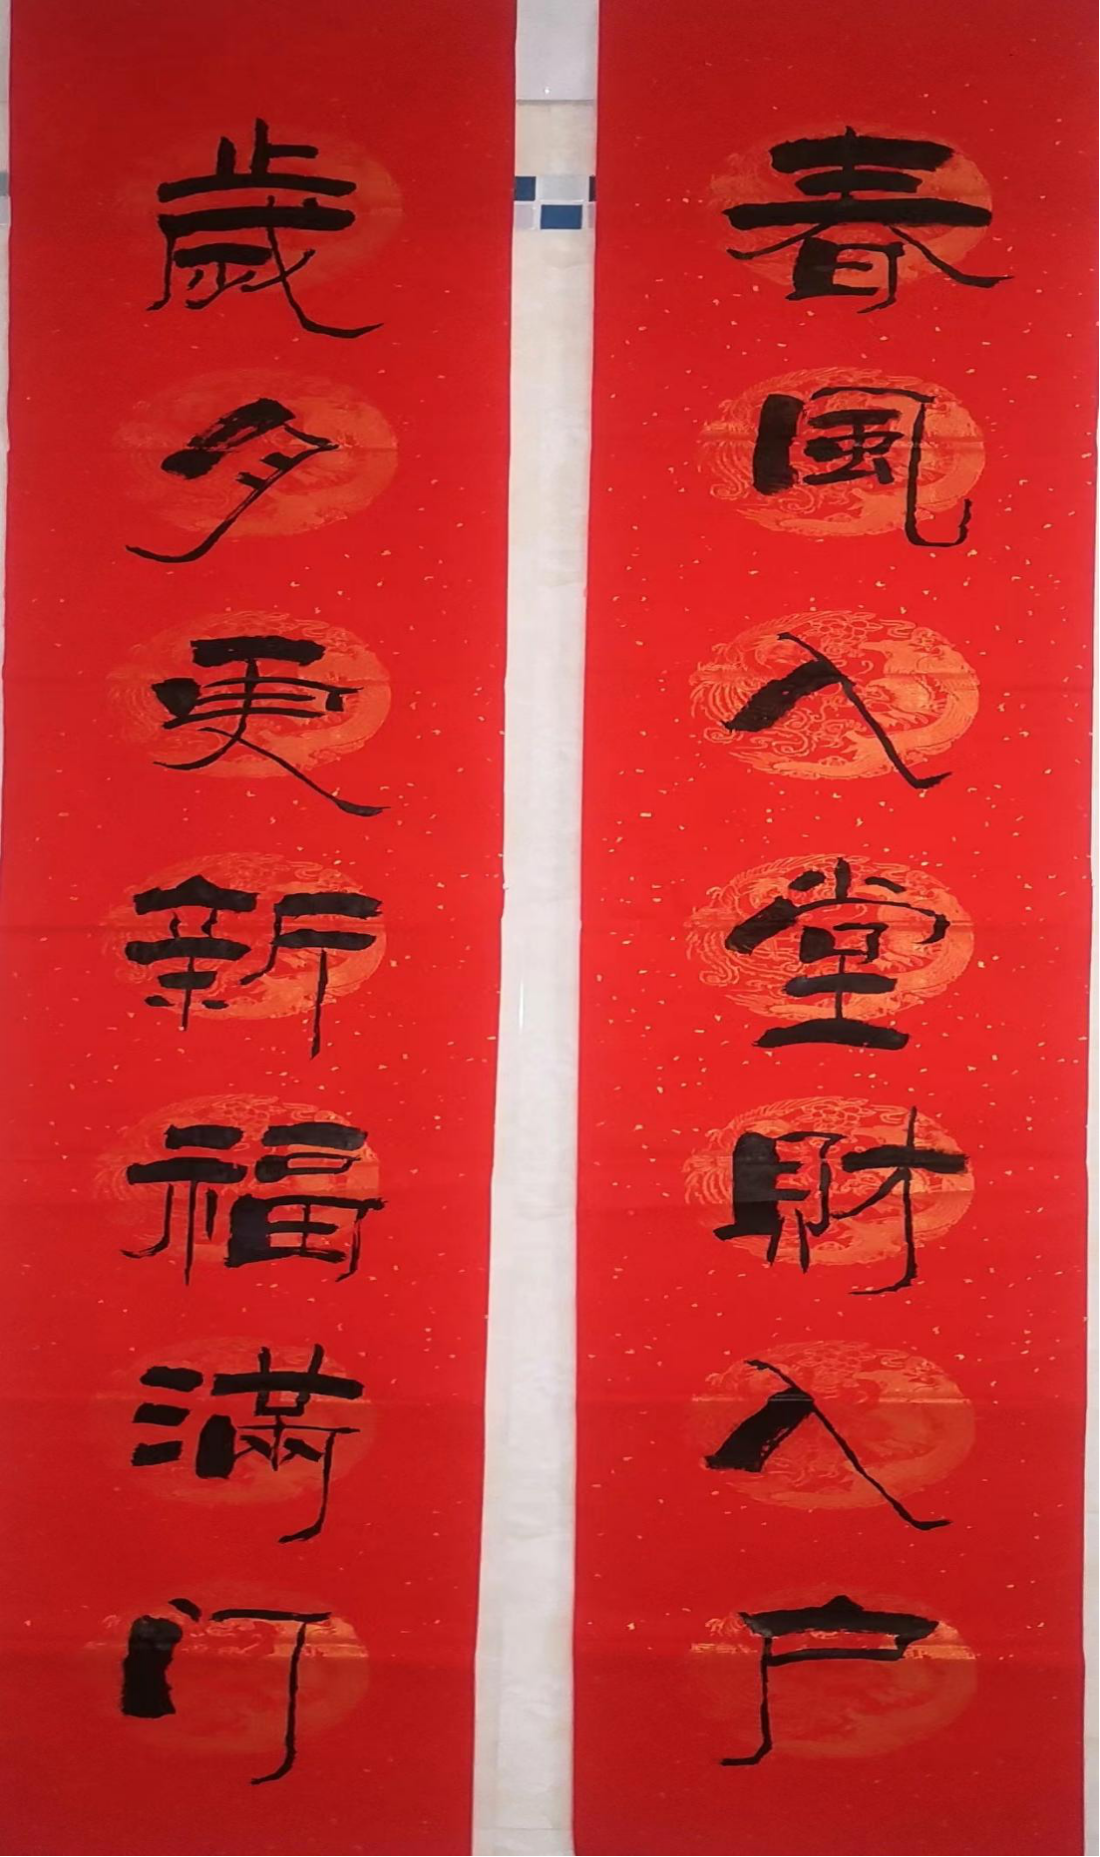 春風入堂財入户
歲夕更新福满门